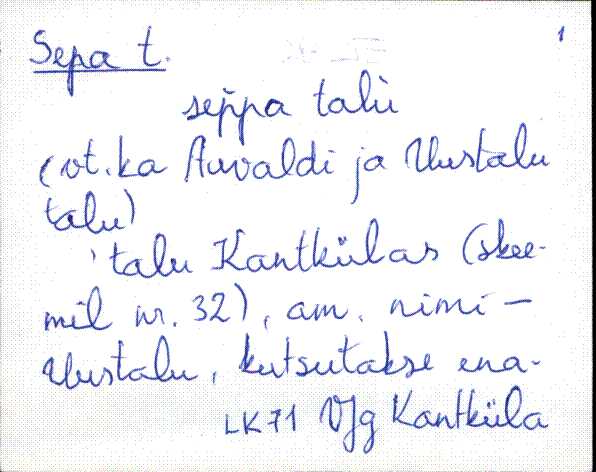 Sepa t. 1
seppa talu
(vt. ka Auvaldi ja Uustalu
talu)
talu Kantkülas (skee-
mil nr. 32), am. nimi –
Uustalu, kutsutakse ena-
LK71 VJg Kantküla